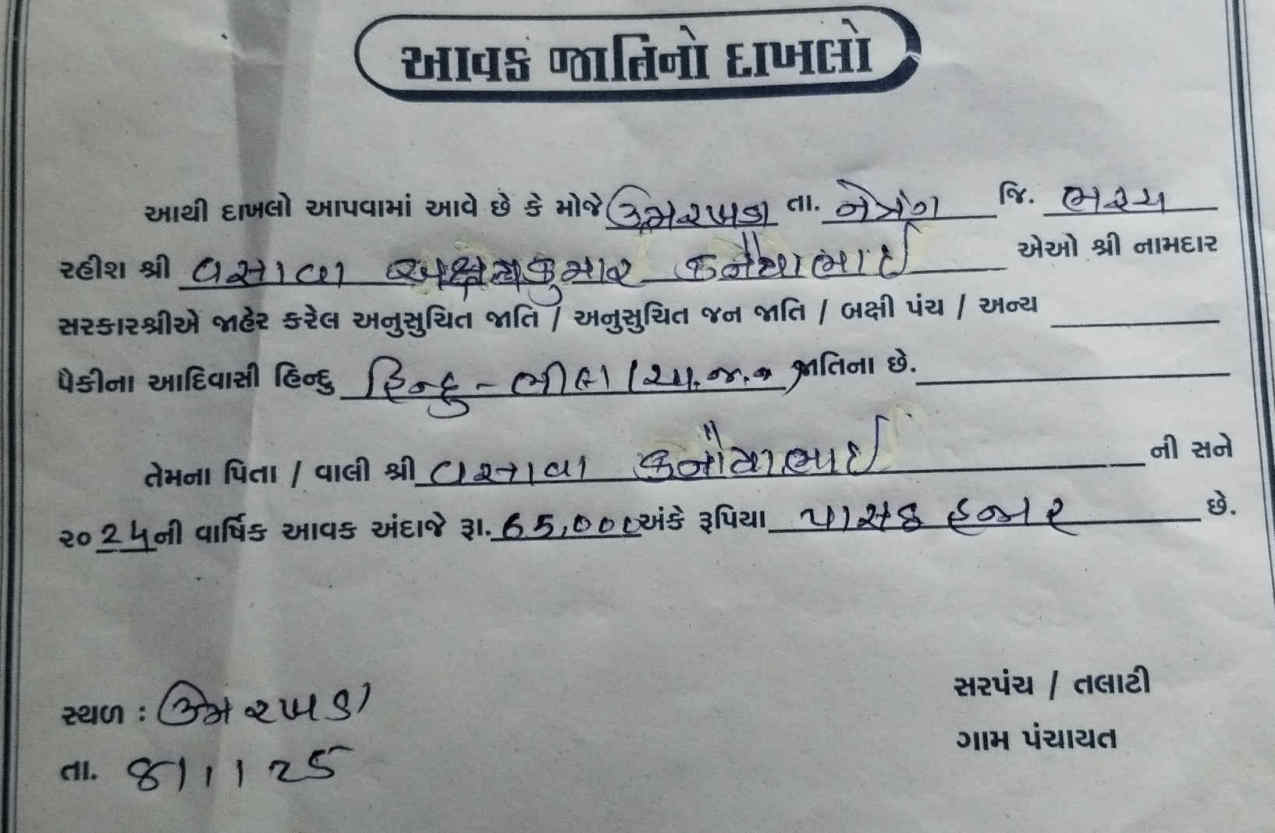 આવક જાતિનો દાખલો
આથી દાખલો આપવામાં આવે છે કે મોજે ઉમરખડા તા. નેત્રંગ જિ. ભરૂચ
રહીશ શ્રી વસાવા અક્ષયકુમાર કનૈયાભાઈ એઓ શ્રી નામદાર
સરકારશ્રીએ જાહેર કરેલ અનુસુચિત જાતિ / અનુસુચિત જન જાતિ / બક્ષી પંચ / અન્ય
પૈકીના આદિવાસી હિન્દુ હિન્દુ - ભીલ જાતિના છે.
તેમના પિતા / વાલી શ્રી વસાવા કનૈયાભાઈ ની સને
૨૦૨૫ની વાર્ષિક આવક અંદાજે રૂા. 65,000 અંકે રૂપિયા પાસઠ હજાર છે.
સરપંચ / તલાટી
સ્થળ : ઉમરખડા
ગામ પંચાયત
તા. ૪/1/25